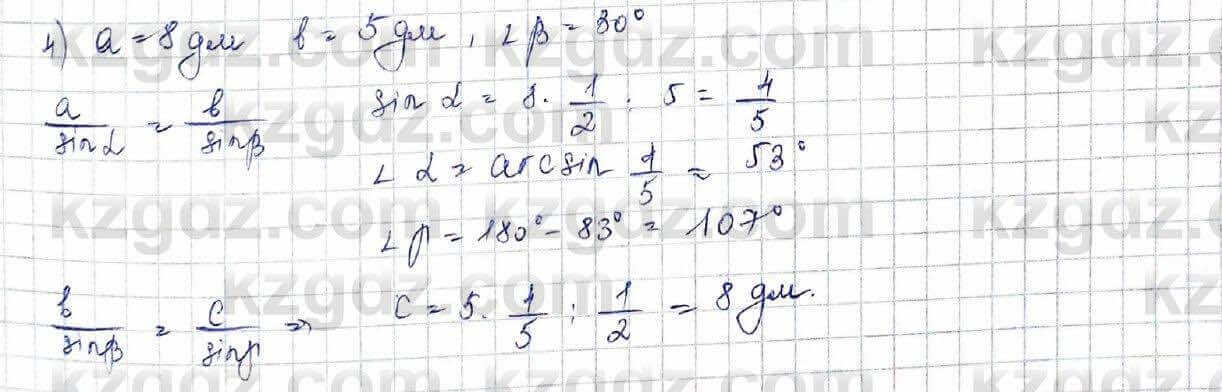 4) a = 8 дм b = 5 дм, ∠β = 30°
a/sin α = b/sin β sin α = 8 · 1/2 : 5 = 4/5
∠α = arcsin 1/5 ≈ 53°
∠γ = 180° - 83° = 107°
b/sin β = c/sin γ ⇒ c = 5 · 1/5 : 1/2 = 8 дм.
kzgdz.com